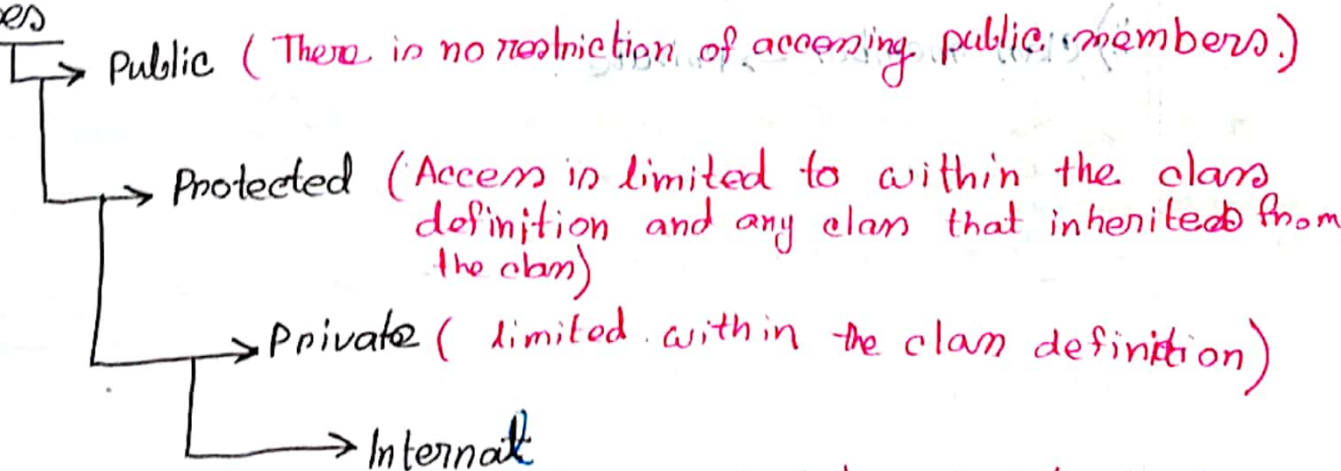 Public (There is no restriction of accessing public members.)
Protected (Access is limited to within the class
definition and any class that inherited from
the class)
Private ( limited within the class definition)
Internal